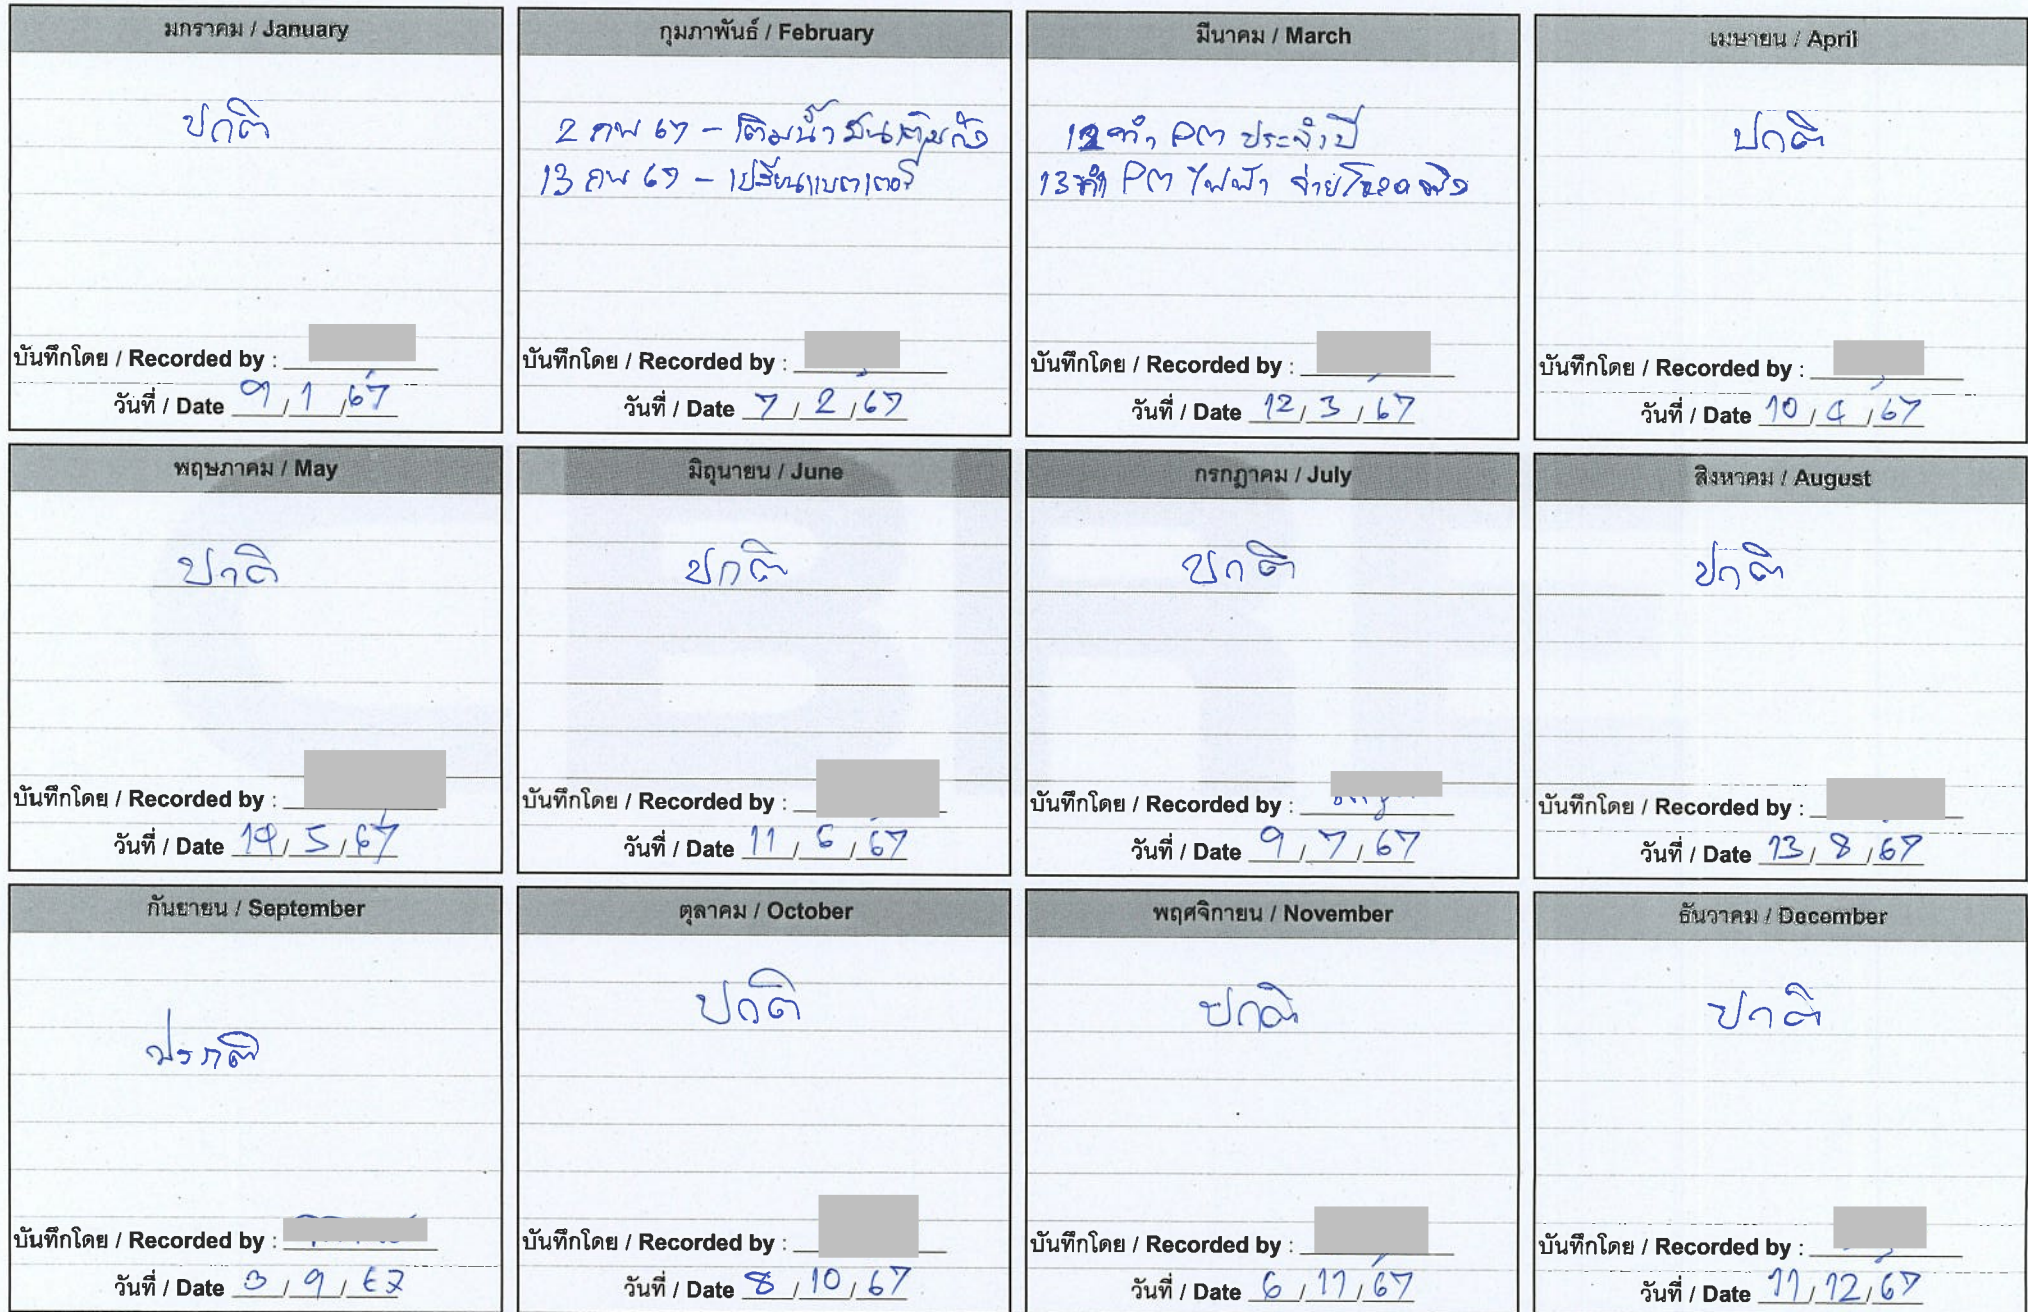 มกราคม / January
ปกติ
บันทึกโดย / Recorded by :
วันที่ / Date 9 / 1 / 67
กุมภาพันธ์ / February
2 กพ 67 - เติมน้ำมันเต็มถัง
13 กพ 67 - เปลี่ยนแบตเตอรี่
บันทึกโดย / Recorded by :
วันที่ / Date 7 / 2 / 67
มีนาคม / March
12 ทำ PM ประจำปี
13 ทำ PM ไฟฟ้า จ่ายโหลดจริง
บันทึกโดย / Recorded by :
วันที่ / Date 12 / 3 / 67
เมษายน / April
ปกติ
บันทึกโดย / Recorded by :
วันที่ / Date 10 / 4 / 67
พฤษภาคม / May
ปกติ
บันทึกโดย / Recorded by :
วันที่ / Date 14 / 5 / 67
มิถุนายน / June
ปกติ
บันทึกโดย / Recorded by :
วันที่ / Date 11 / 6 / 67
กรกฎาคม / July
ปกติ
บันทึกโดย / Recorded by :
วันที่ / Date 9 / 7 / 67
สิงหาคม / August
ปกติ
บันทึกโดย / Recorded by :
วันที่ / Date 13 / 8 / 67
กันยายน / September
ปรกติ
บันทึกโดย / Recorded by :
วันที่ / Date 3 / 9 / 67
ตุลาคม / October
ปกติ
บันทึกโดย / Recorded by :
วันที่ / Date 8 / 10 / 67
พฤศจิกายน / November
ปกติ
บันทึกโดย / Recorded by :
วันที่ / Date 6 / 11 / 67
ธันวาคม / December
ปกติ
บันทึกโดย / Recorded by :
วันที่ / Date 11 / 12 / 67
CBRE